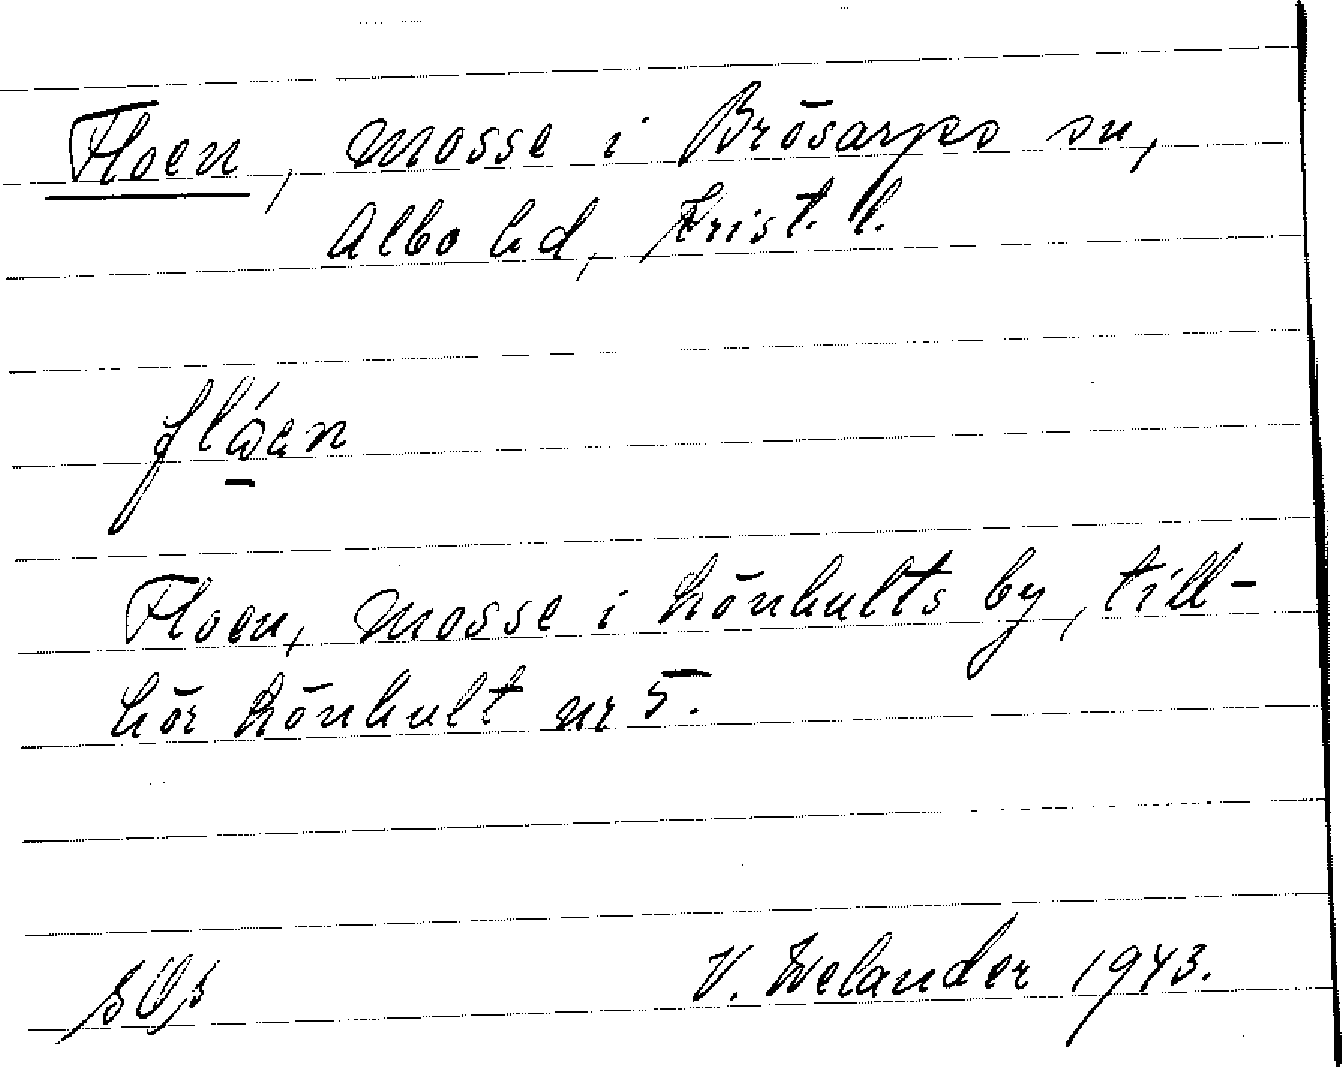 Floen, mosse i Brösarps sn,
Albo hd, Krist. l.
Floen, mosse i Lönhults by, till-
hör Lönhult nr 5.
V. Welander 1943.